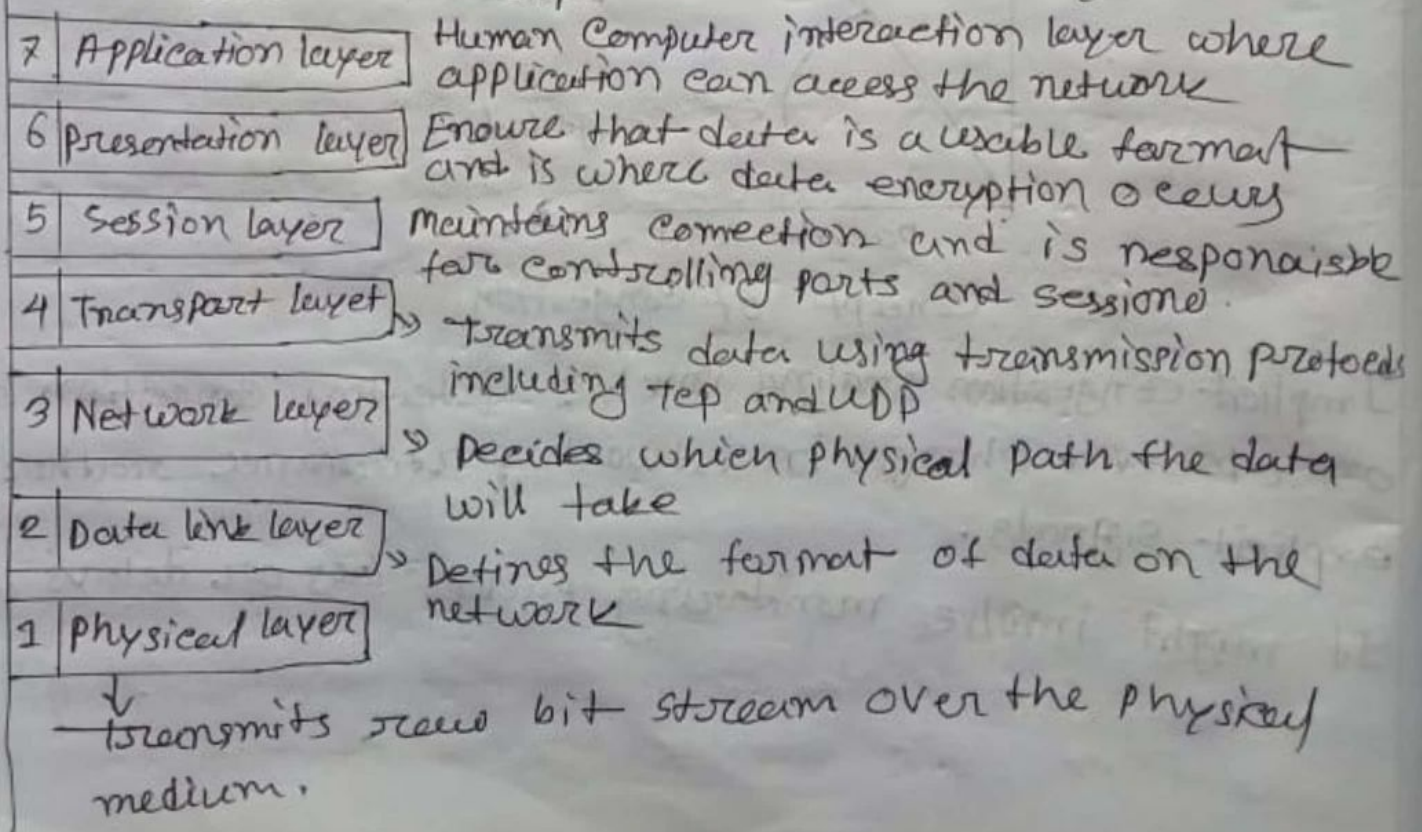 7 Application layer
Human Computer interaction layer where
application can access the network
6 Presentation layer
Enoure that data is a usable format
and is where data encryption occurs
5 Session layer
maintains connection and is responaisble
for controlling ports and sessions.
4 Transport layer
transmits data using transmission protocols
including TCP and UDP
3 Network layer
Decides which physical path the data
will take
2 Data link layer
Defines the format of data on the
network
1 physical layer
transmits raw bit stream over the physical
medium.